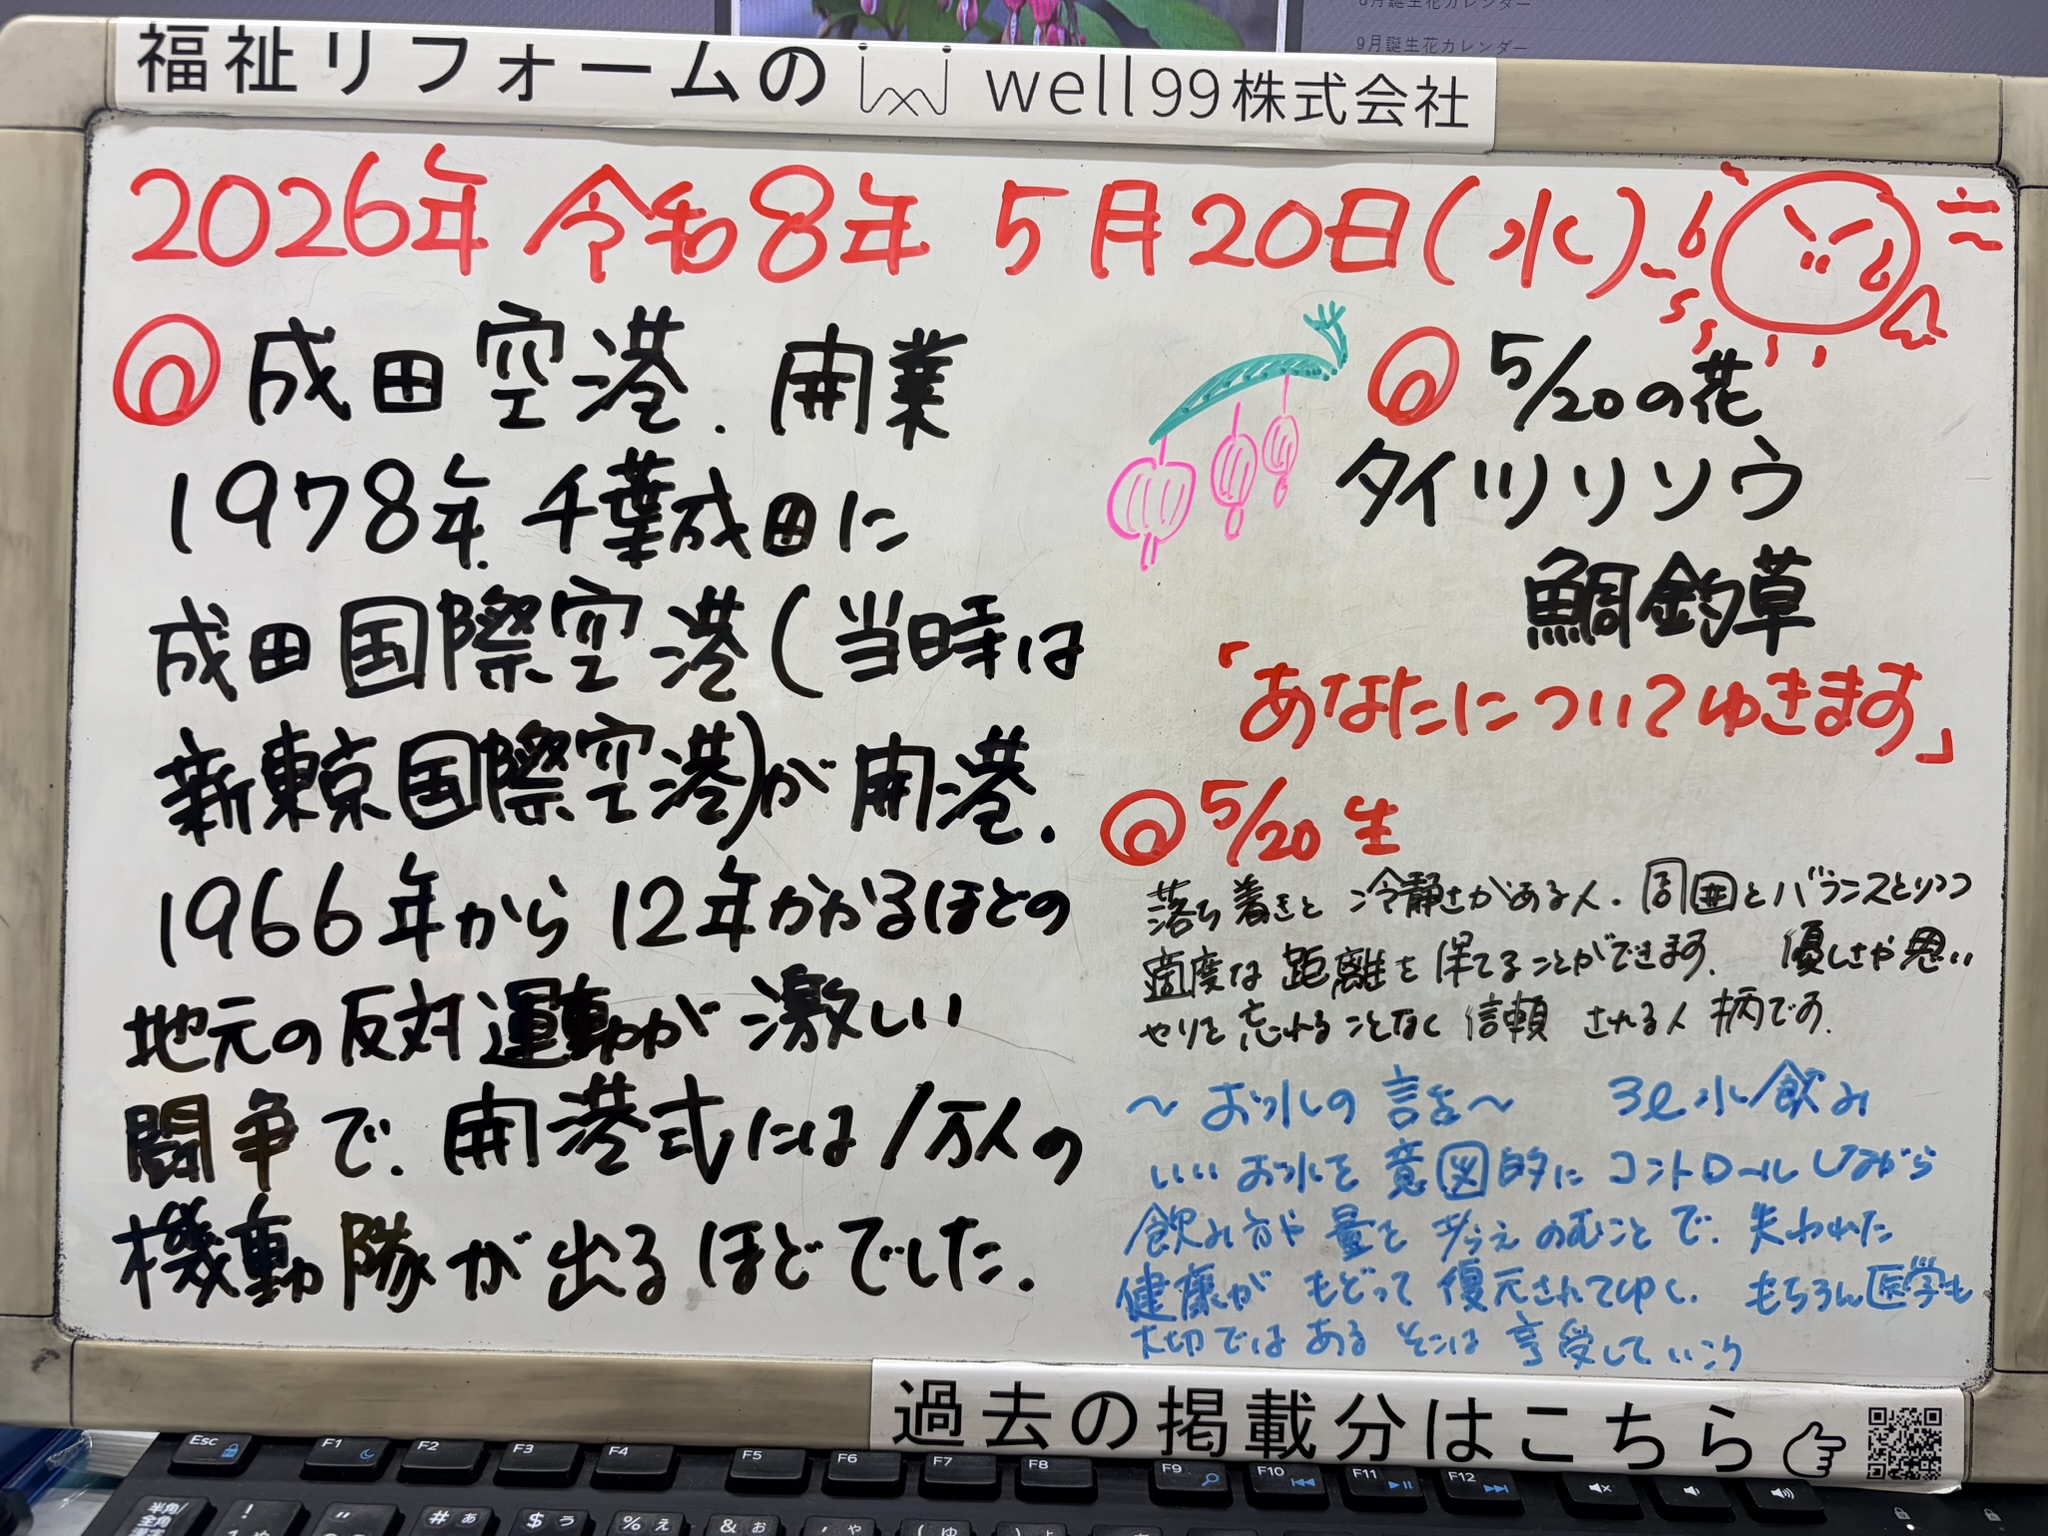 8月誕生花カレンダー
9月誕生花カレンダー
福祉リフォームの well99株式会社
2026年 令和8年 5月20日(水)
成田空港.開業
1978年.千葉成田に
成田国際空港(当時は
新東京国際空港)が開港.
1966年から12年かかるほどの
地元の反対運動が激しい
闘争で.開港式には1万人の
機動隊が出るほどでした.
5/20の花
タイツリソウ
鯛釣草
「あなたについてゆきます」
5/20生
落ち着きと冷静さがある人.周囲とバランスとりつつ
適度な距離を保てることができます.優しさや思い
やりを忘れることなく信頼される人柄です.
〜お水の話〜 3ℓ水飲み
いいお水を意図的にコントロールしながら
飲み方や量を考えのむことで.失われた
健康がもどって復元されてゆく.もちろん医学も
大切ではあるそこは享受していこう
過去の掲載分はこちら
Esc F1 F2 F3 F4 F5 F6 F7 F8 F9 F10 F11 F12
半角/全角 漢字 ! " # あ $ う % え & お ' や ( ゆ ) よ